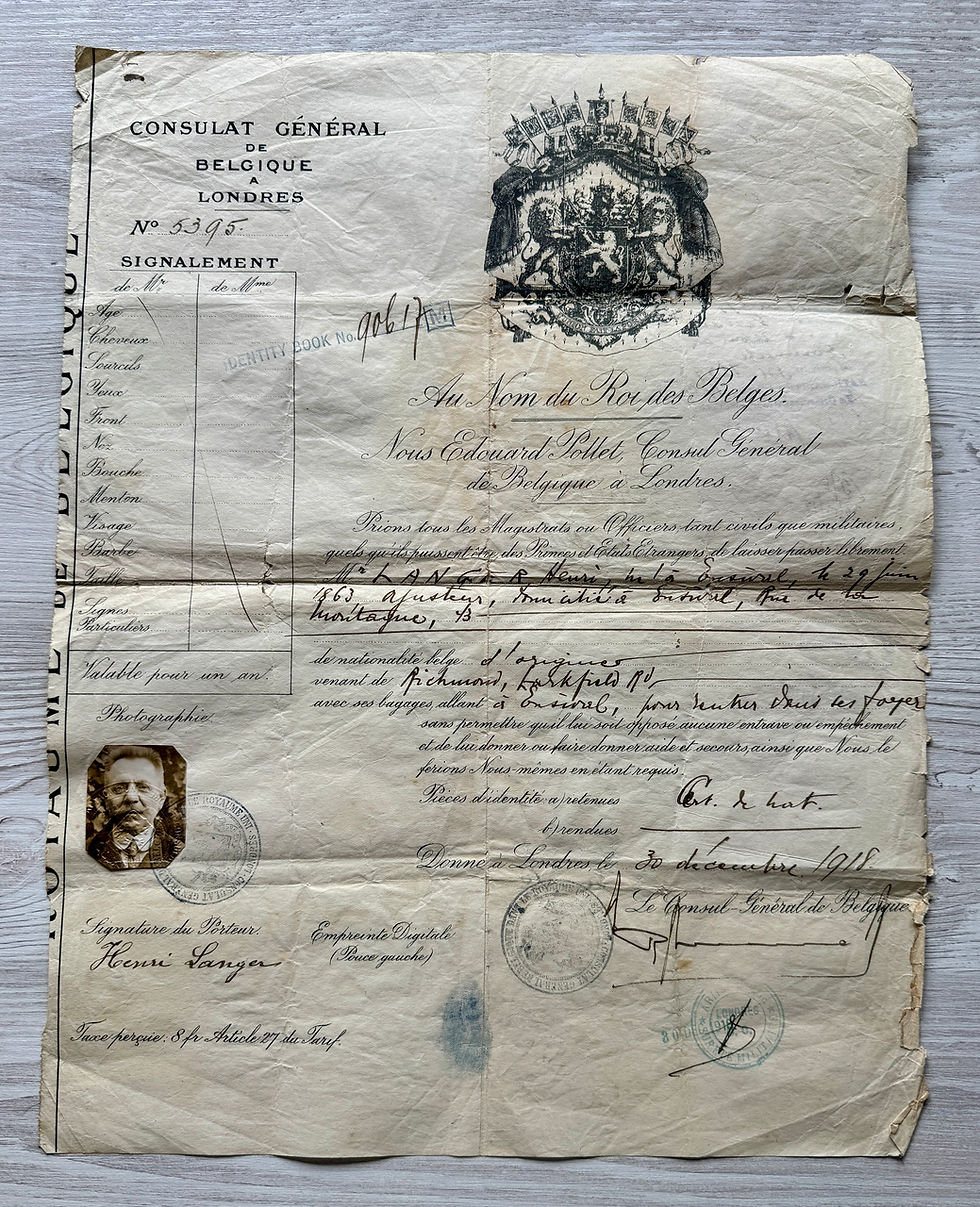 ROYAUME DE BELGIQUE
CONSULAT GÉNÉRAL
DE
BELGIQUE
A
LONDRES
Nº 5395.
SIGNALEMENT
de Mr de Mme
Age
Cheveux
Sourcils
Yeux
Front
Nez
Bouche
Menton
Visage
Barbe
Taille
Signes
Particuliers
Valable pour un an.
Photographie
IDENTITY BOOK No. 90617 M
Au Nom du Roi des Belges.
Nous Edouard Pollet, Consul Général
de Belgique à Londres.
Prions tous les Magistrats ou Officiers tant civils que militaires,
quels qu'ils puissent être, des Princes et Etats Etrangers, de laisser passer librement
Mr LANGER Henri, né à Ensival, le 29 juin
1863, ajusteur, domicilié à Ensival, Rue de la
Montagne, 13
de nationalité belge d'origine
venant de Richmond, Larkfield Rd
avec ses bagages, allant à Ensival, pour rentrer dans ses foyers
sans permettre qu'il lui soit opposé aucune entrave ou empêchement
et de lui donner ou faire donner aide et secours, ainsi que Nous le
ferions Nous-mêmes en étant requis.
Pièces d'identité a) retenues Cert. de nat.
b) rendues
Donné à Londres, le 30 décembre 1918
Le Consul-Général de Belgique
Signature du Porteur.
Henri Langer
Empreinte Digitale
(Pouce gauche)
Taxe perçue: 8 fr Article 27 du Tarif.